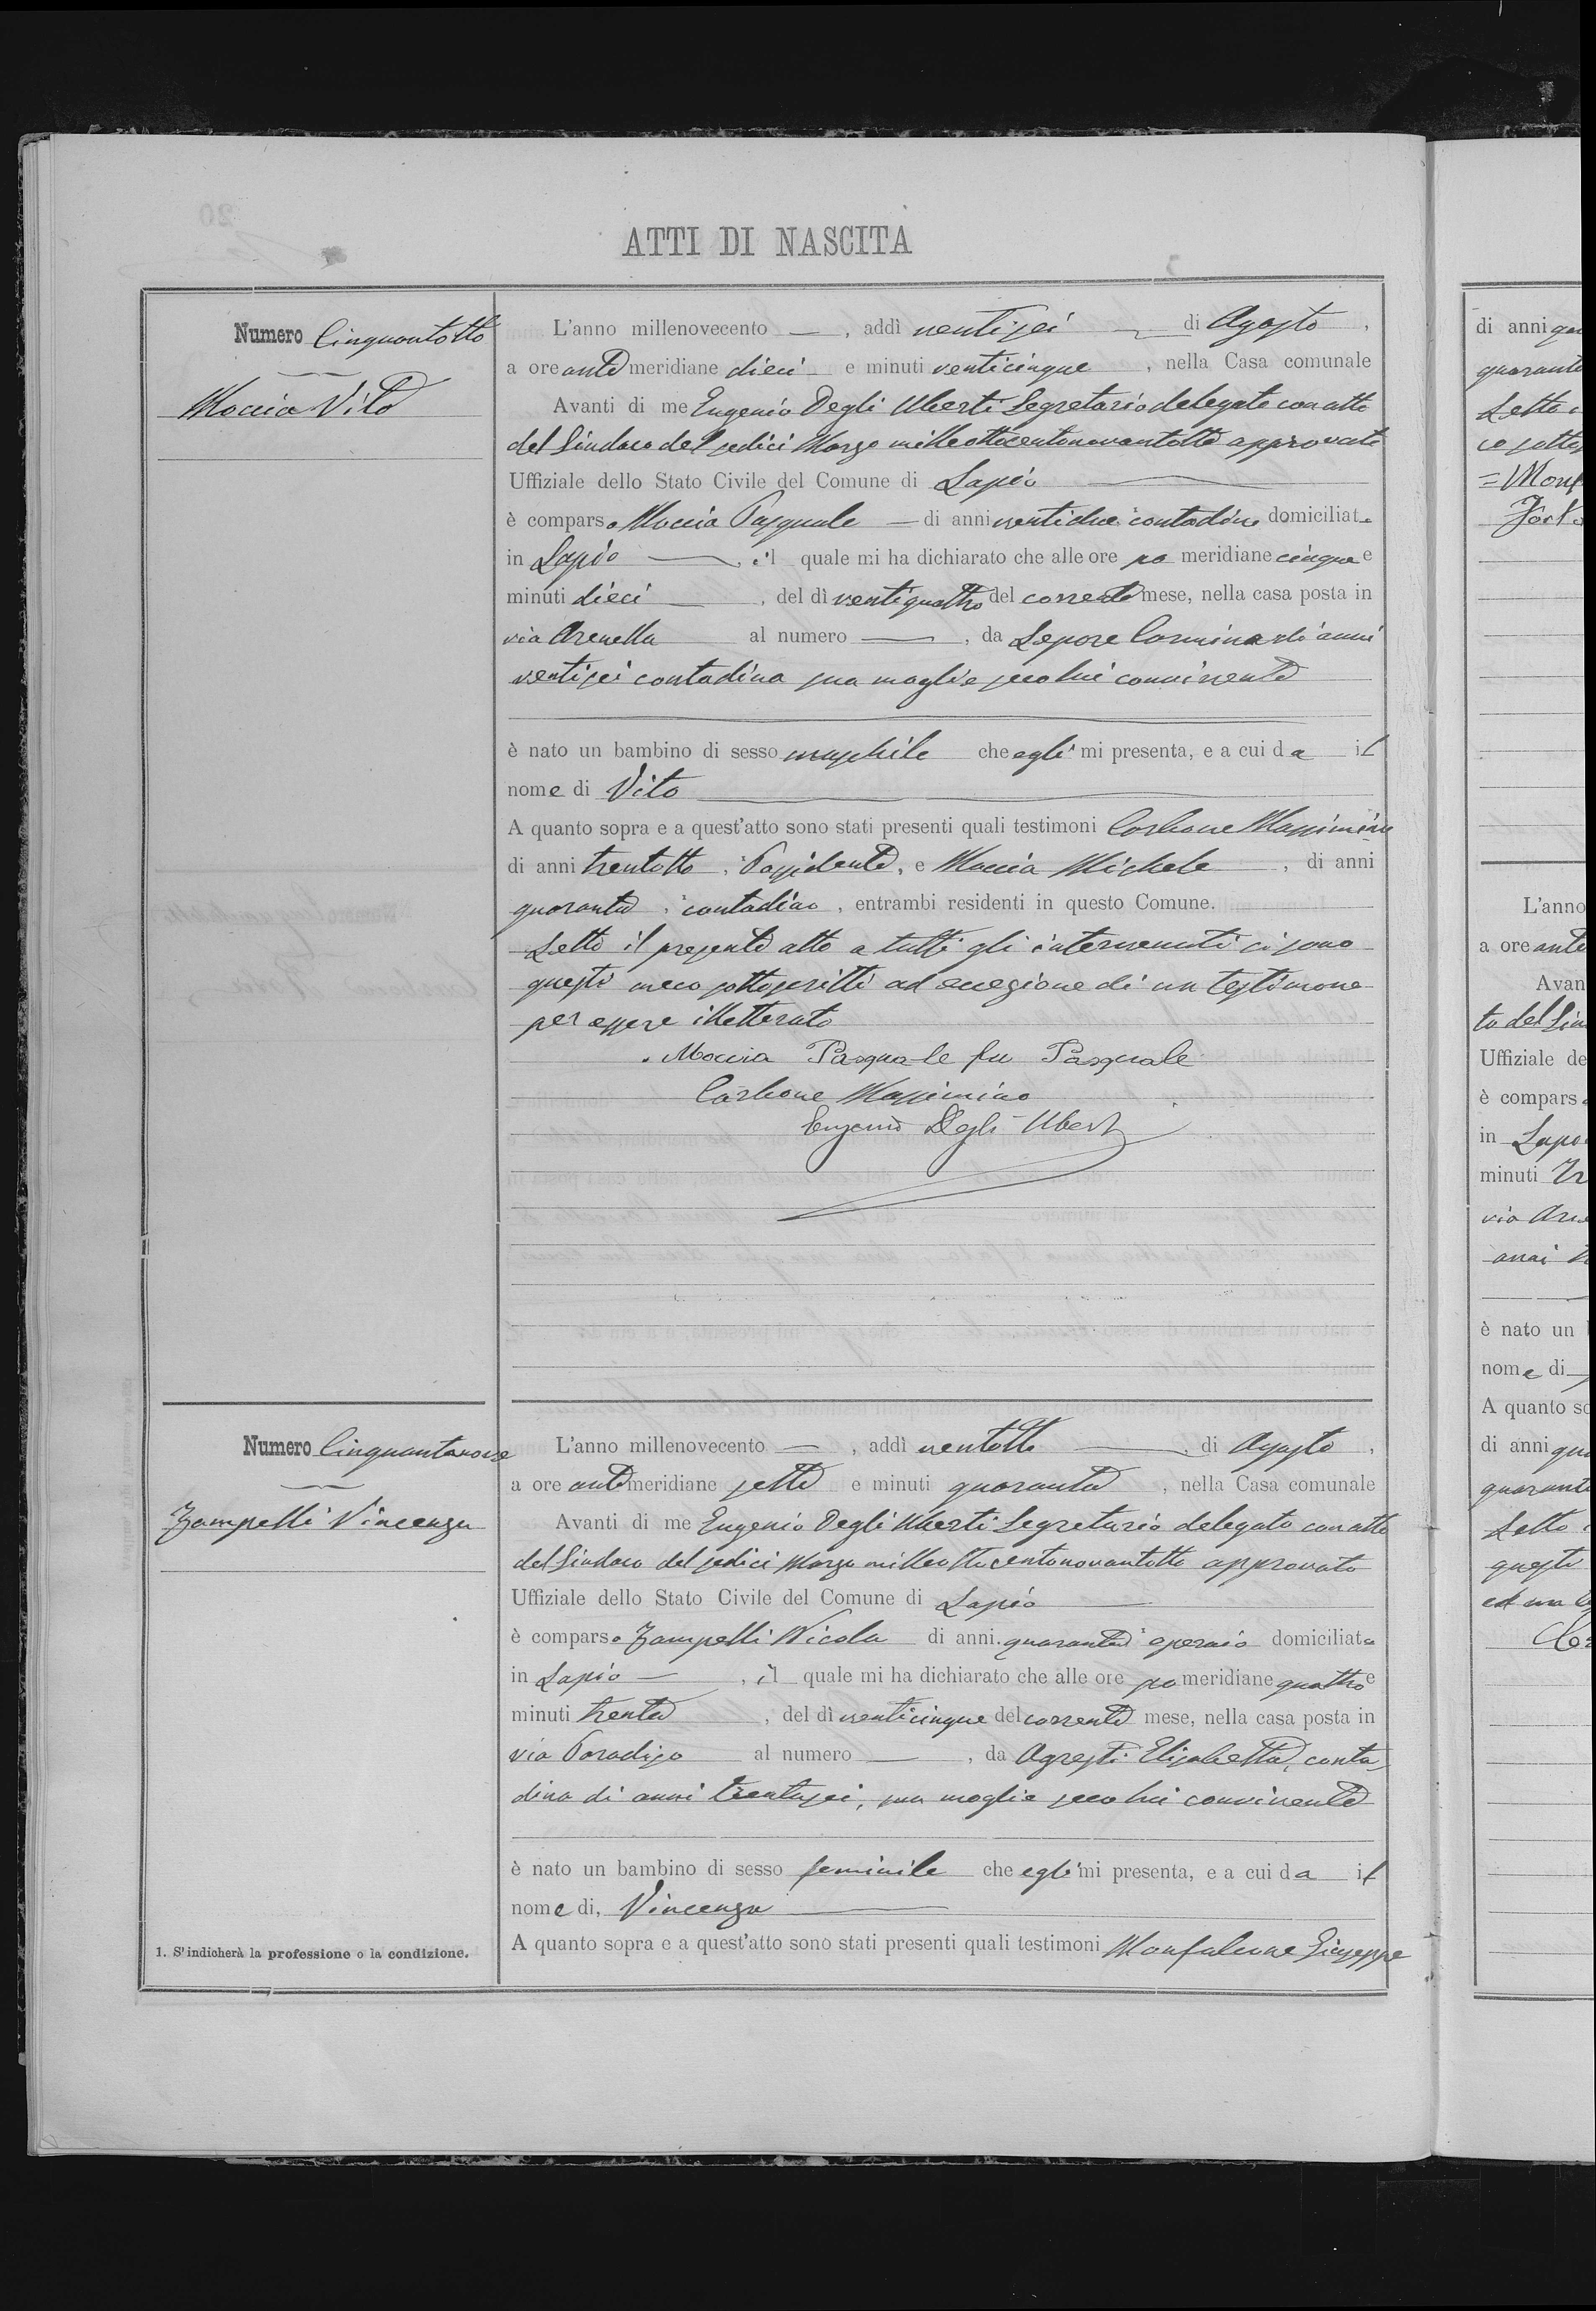 ATTI DI NASCITA
Numero Cinquantotto
Moccia Vito
L'anno millenovecento — , addì ventisei — di Agosto ,
a ore ante meridiane dieci e minuti venticinque , nella Casa comunale
Avanti di me Eugenio Degli Uberti Segretario delegato con atto
del Sindaco del sedici Marzo milleottocentonovantotto approvato
Uffiziale dello Stato Civile del Comune di Lapio —
è comparso Moccia Pasquale — di anni ventidue contadino domiciliato
in Lapio — , il quale mi ha dichiarato che alle ore po meridiane cinque e
minuti dieci — , del dì ventiquattro del corrente mese, nella casa posta in
via Arenella al numero — , da Lepore Carmina di anni
ventisei contadina sua moglie seco lui convivente
è nato un bambino di sesso maschile che egli mi presenta, e a cui da il
nome di Vito —
A quanto sopra e a quest'atto sono stati presenti quali testimoni Carbone Massimino
di anni trentotto , Possidente, e Moccia Michele , di anni
quaranta , contadino , entrambi residenti in questo Comune.
Letto il presente atto a tutti gli intervenuti si sono
questi meco sottoscritti ad eccezione di un testimone
per essere illetterato
Moccia Pasquale fu Pasquale
Carbone Massimino
Eugenio Degli Uberti
Numero Cinquantanove
Zampelli Vincenza
L'anno millenovecento — , addì ventotto — , di Agosto ,
a ore ante meridiane sette e minuti quaranta , nella Casa comunale
Avanti di me Eugenio Degli Uberti Segretario delegato con atto
del Sindaco del sedici Marzo milleottocentonovantotto approvato
Uffiziale dello Stato Civile del Comune di Lapio —
è comparso Zampelli Nicola di anni quaranta operaio domiciliato
in Lapio — , il quale mi ha dichiarato che alle ore po meridiane quattro e
minuti trenta , del dì venticinque del corrente mese, nella casa posta in
via Paradiso al numero — , da Agresti Elisabetta, conta
dina di anni trentasei, sua moglie seco lui convivente
è nato un bambino di sesso feminile che egli mi presenta, e a cui da il
nome di, Vincenza —
A quanto sopra e a quest'atto sono stati presenti quali testimoni Monfalcone Giuseppe
1. S'indicherà la professione o la condizione.
di anni
Letto
L'anno
a ore ante
Avan
to del Sin
Uffiziale de
è compars
in Lapio
minuti
via
è nato un
nome di
A quanto so
di anni
Letto
questi